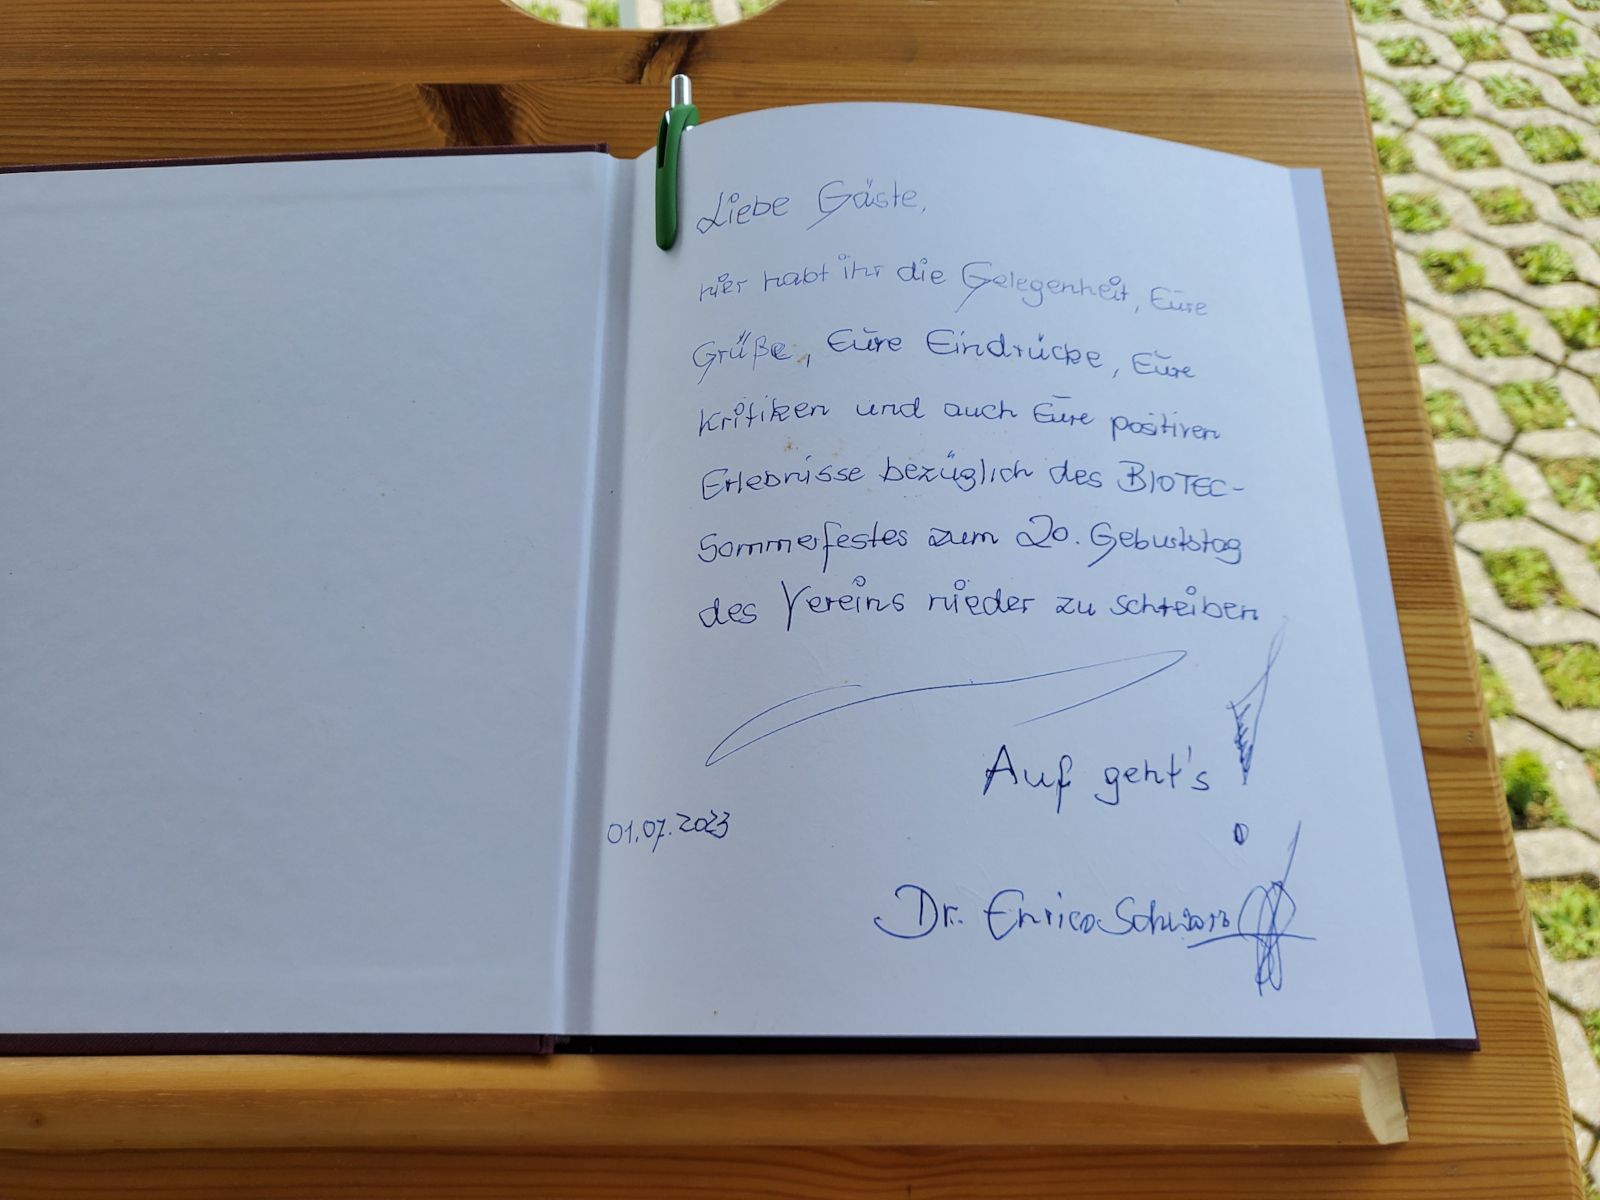 Liebe Gäste,
hier habt ihr die Gelegenheit, Eure
Grüße, Eure Eindrücke, Eure
Kritiken und auch Eure positiven
Erlebnisse bezüglich des BIOTEC-
Sommerfestes zum 20. Geburtstag
des Vereins nieder zu schreiben
Auf geht's!
01.07.2023
Dr. Enrico Schwarz